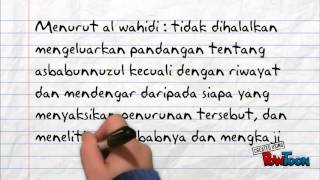 Menurut al wahidi : tidak dihalalkan
mengeluarkan pandangan tentang
asbabunnuzul kecuali dengan riwayat
dan mendengar daripada siapa yang
menyaksikan penurunan tersebut, dan
babnya dan mengka ji
CREATED USING
PowToon